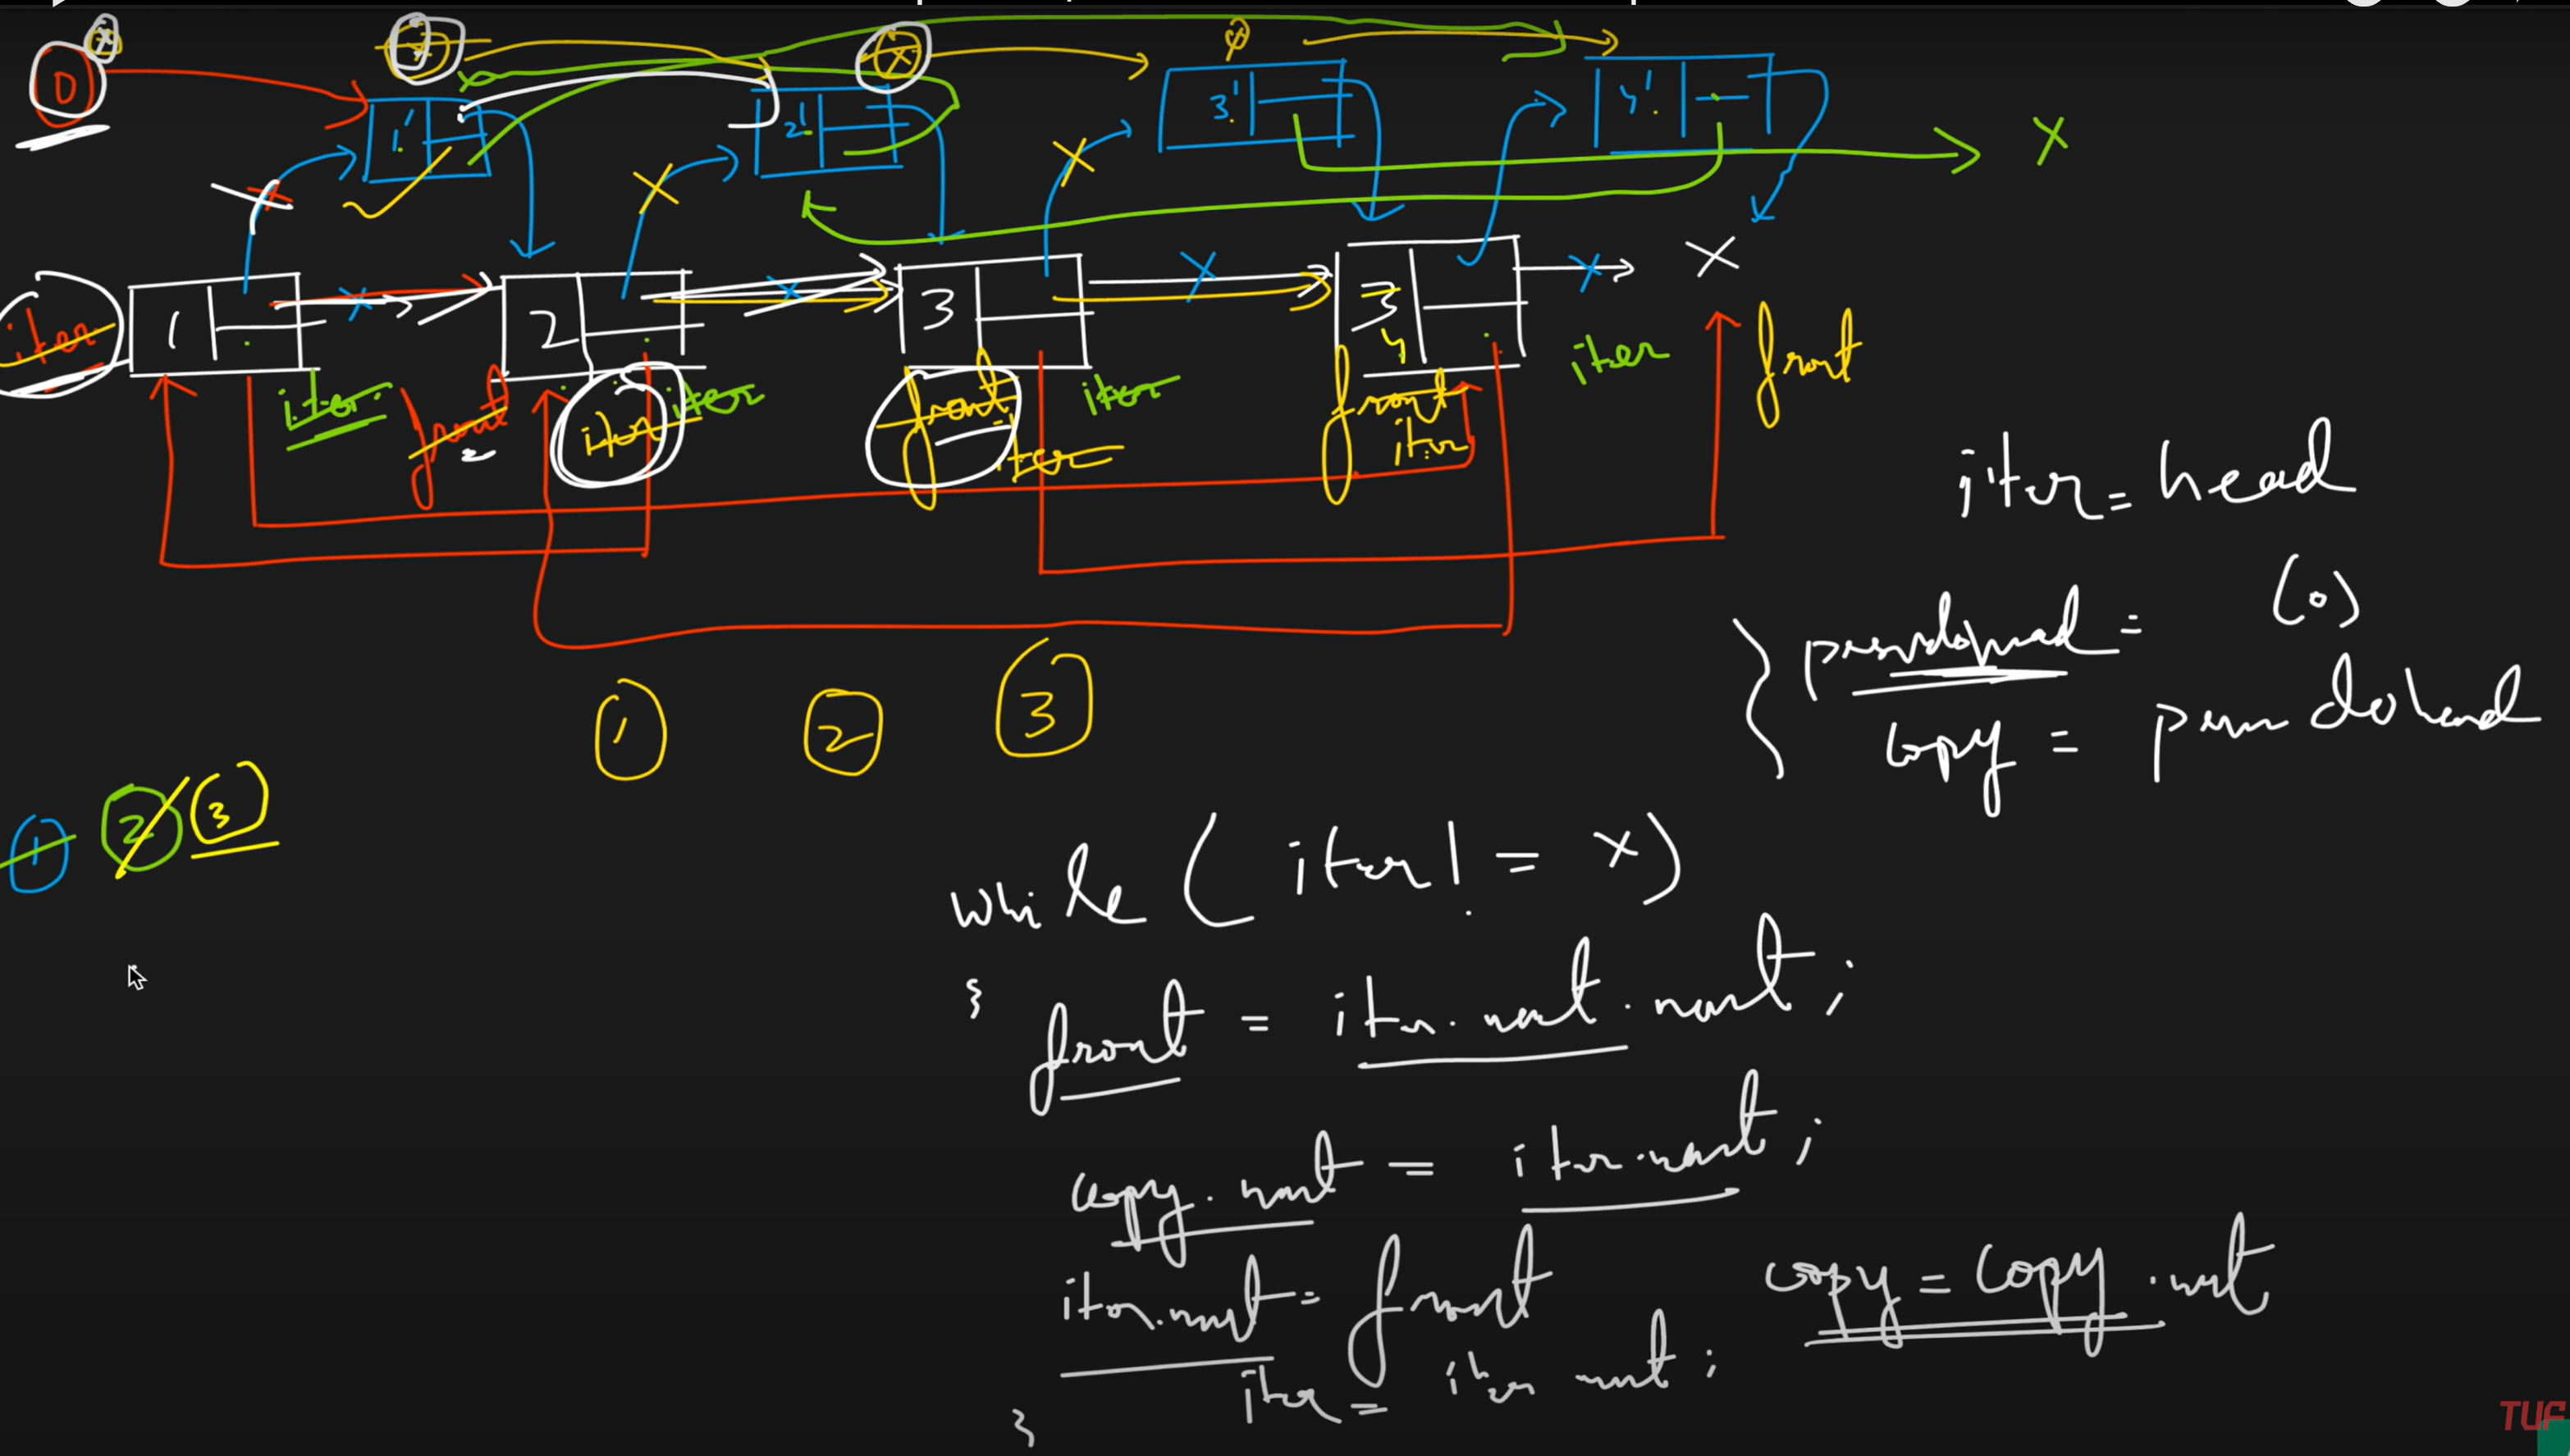 0
1' 2' 3' 4'
1 2 3 3
4
iter iter iter iter iter
front iter front iter front iter front
iter = head
pseudohead = (0)
copy = pseudohead
1 2 3
1 2 3
while ( iter != x )
{
front = iter.next.next;
copy.next = iter.next;
iter.next = front copy = copy.next
iter = iter next;
}
TUF